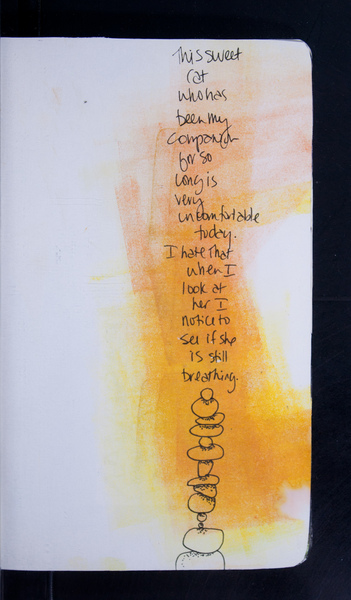 This sweet
cat
who has
been my
companion
for so
long is
very
uncomfortable
today.
I hate that
when I
look at
her I
notice to
see if she
is still
breathing.